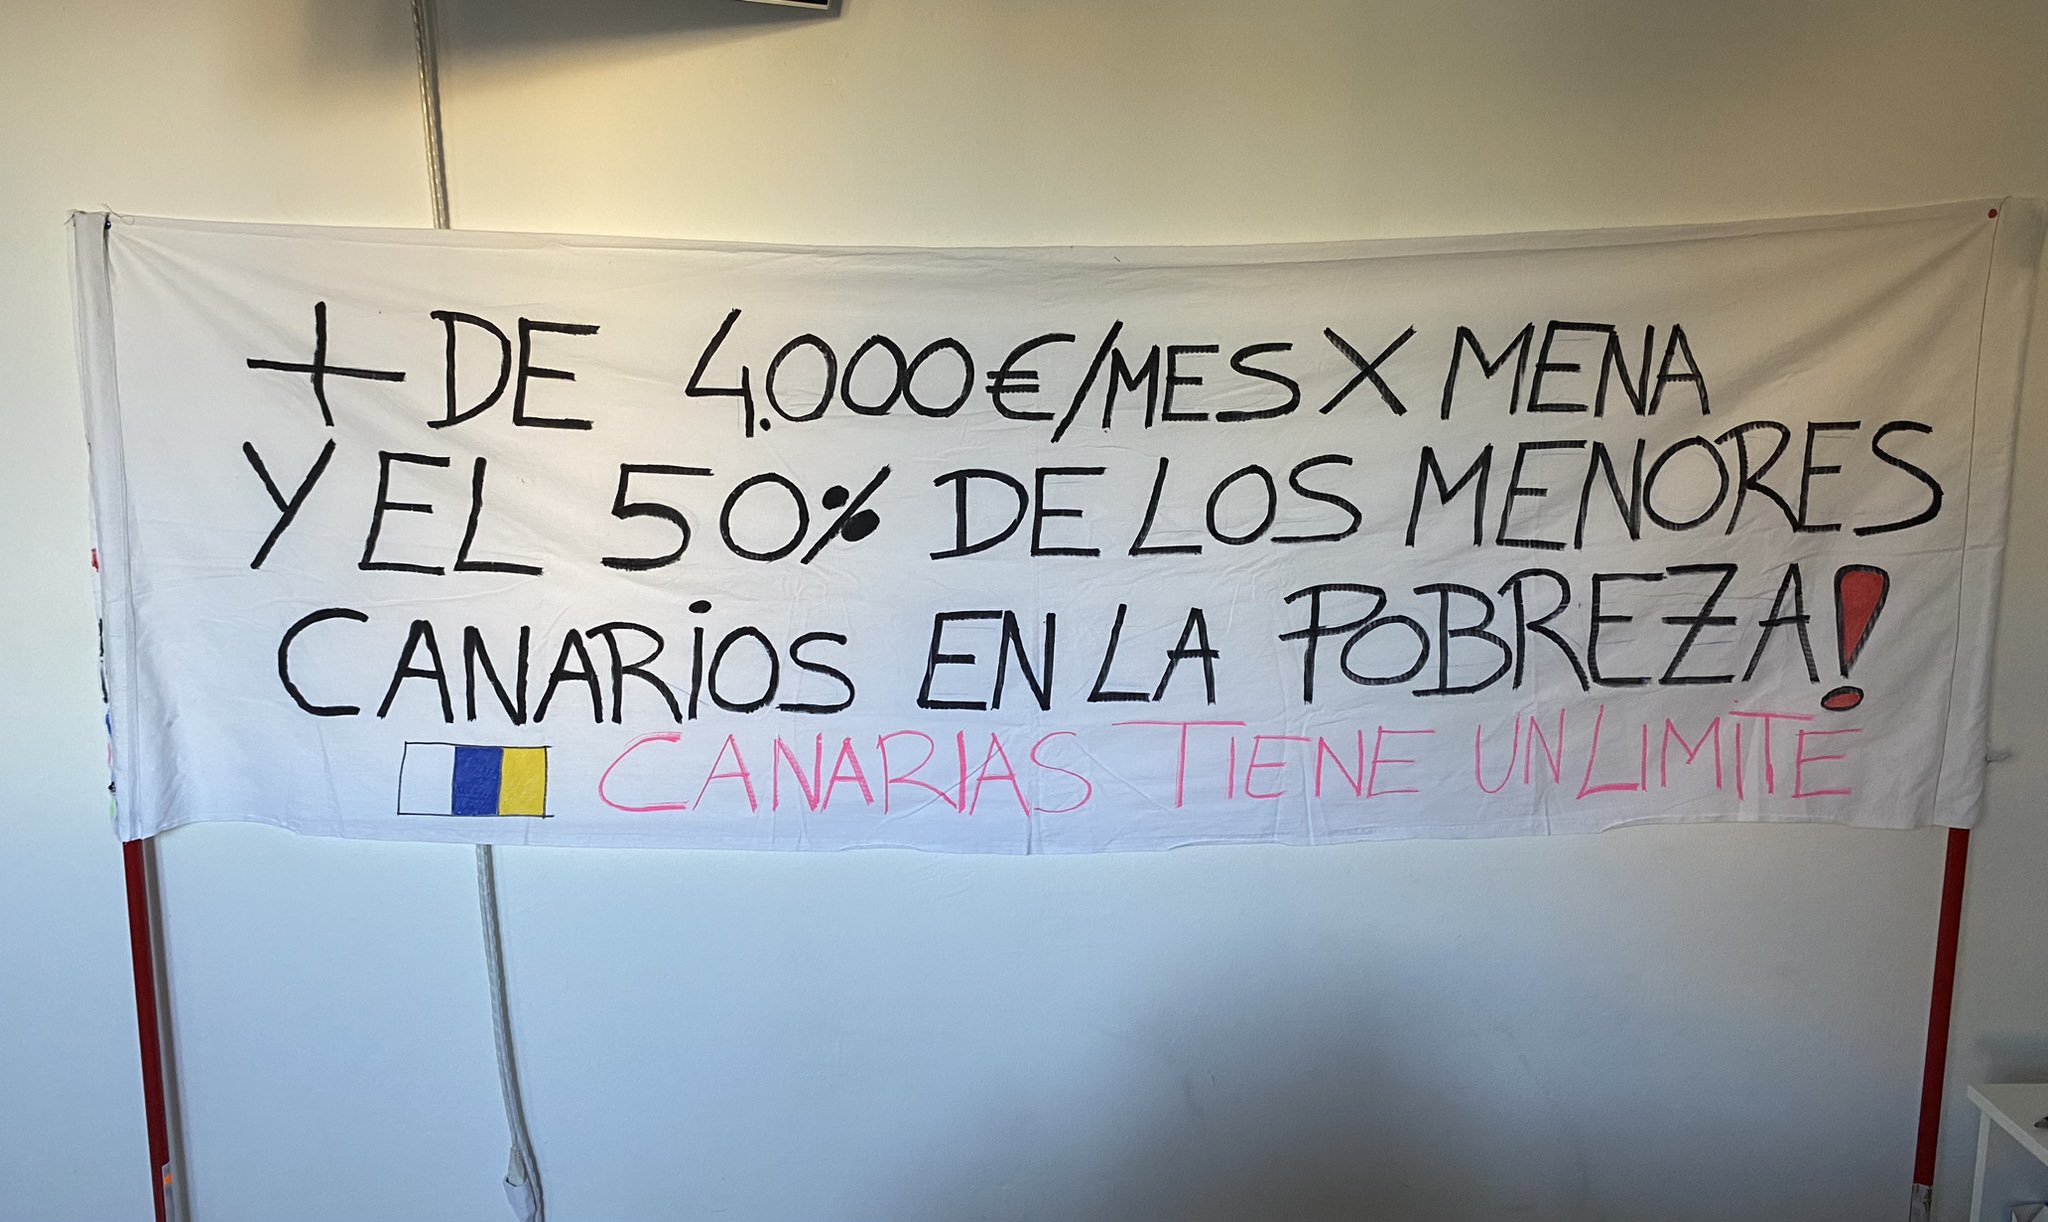 + DE 4.000€/MES X MENA
Y EL 50% DE LOS MENORES
CANARIOS EN LA POBREZA!
CANARIAS TIENE UN LIMITE